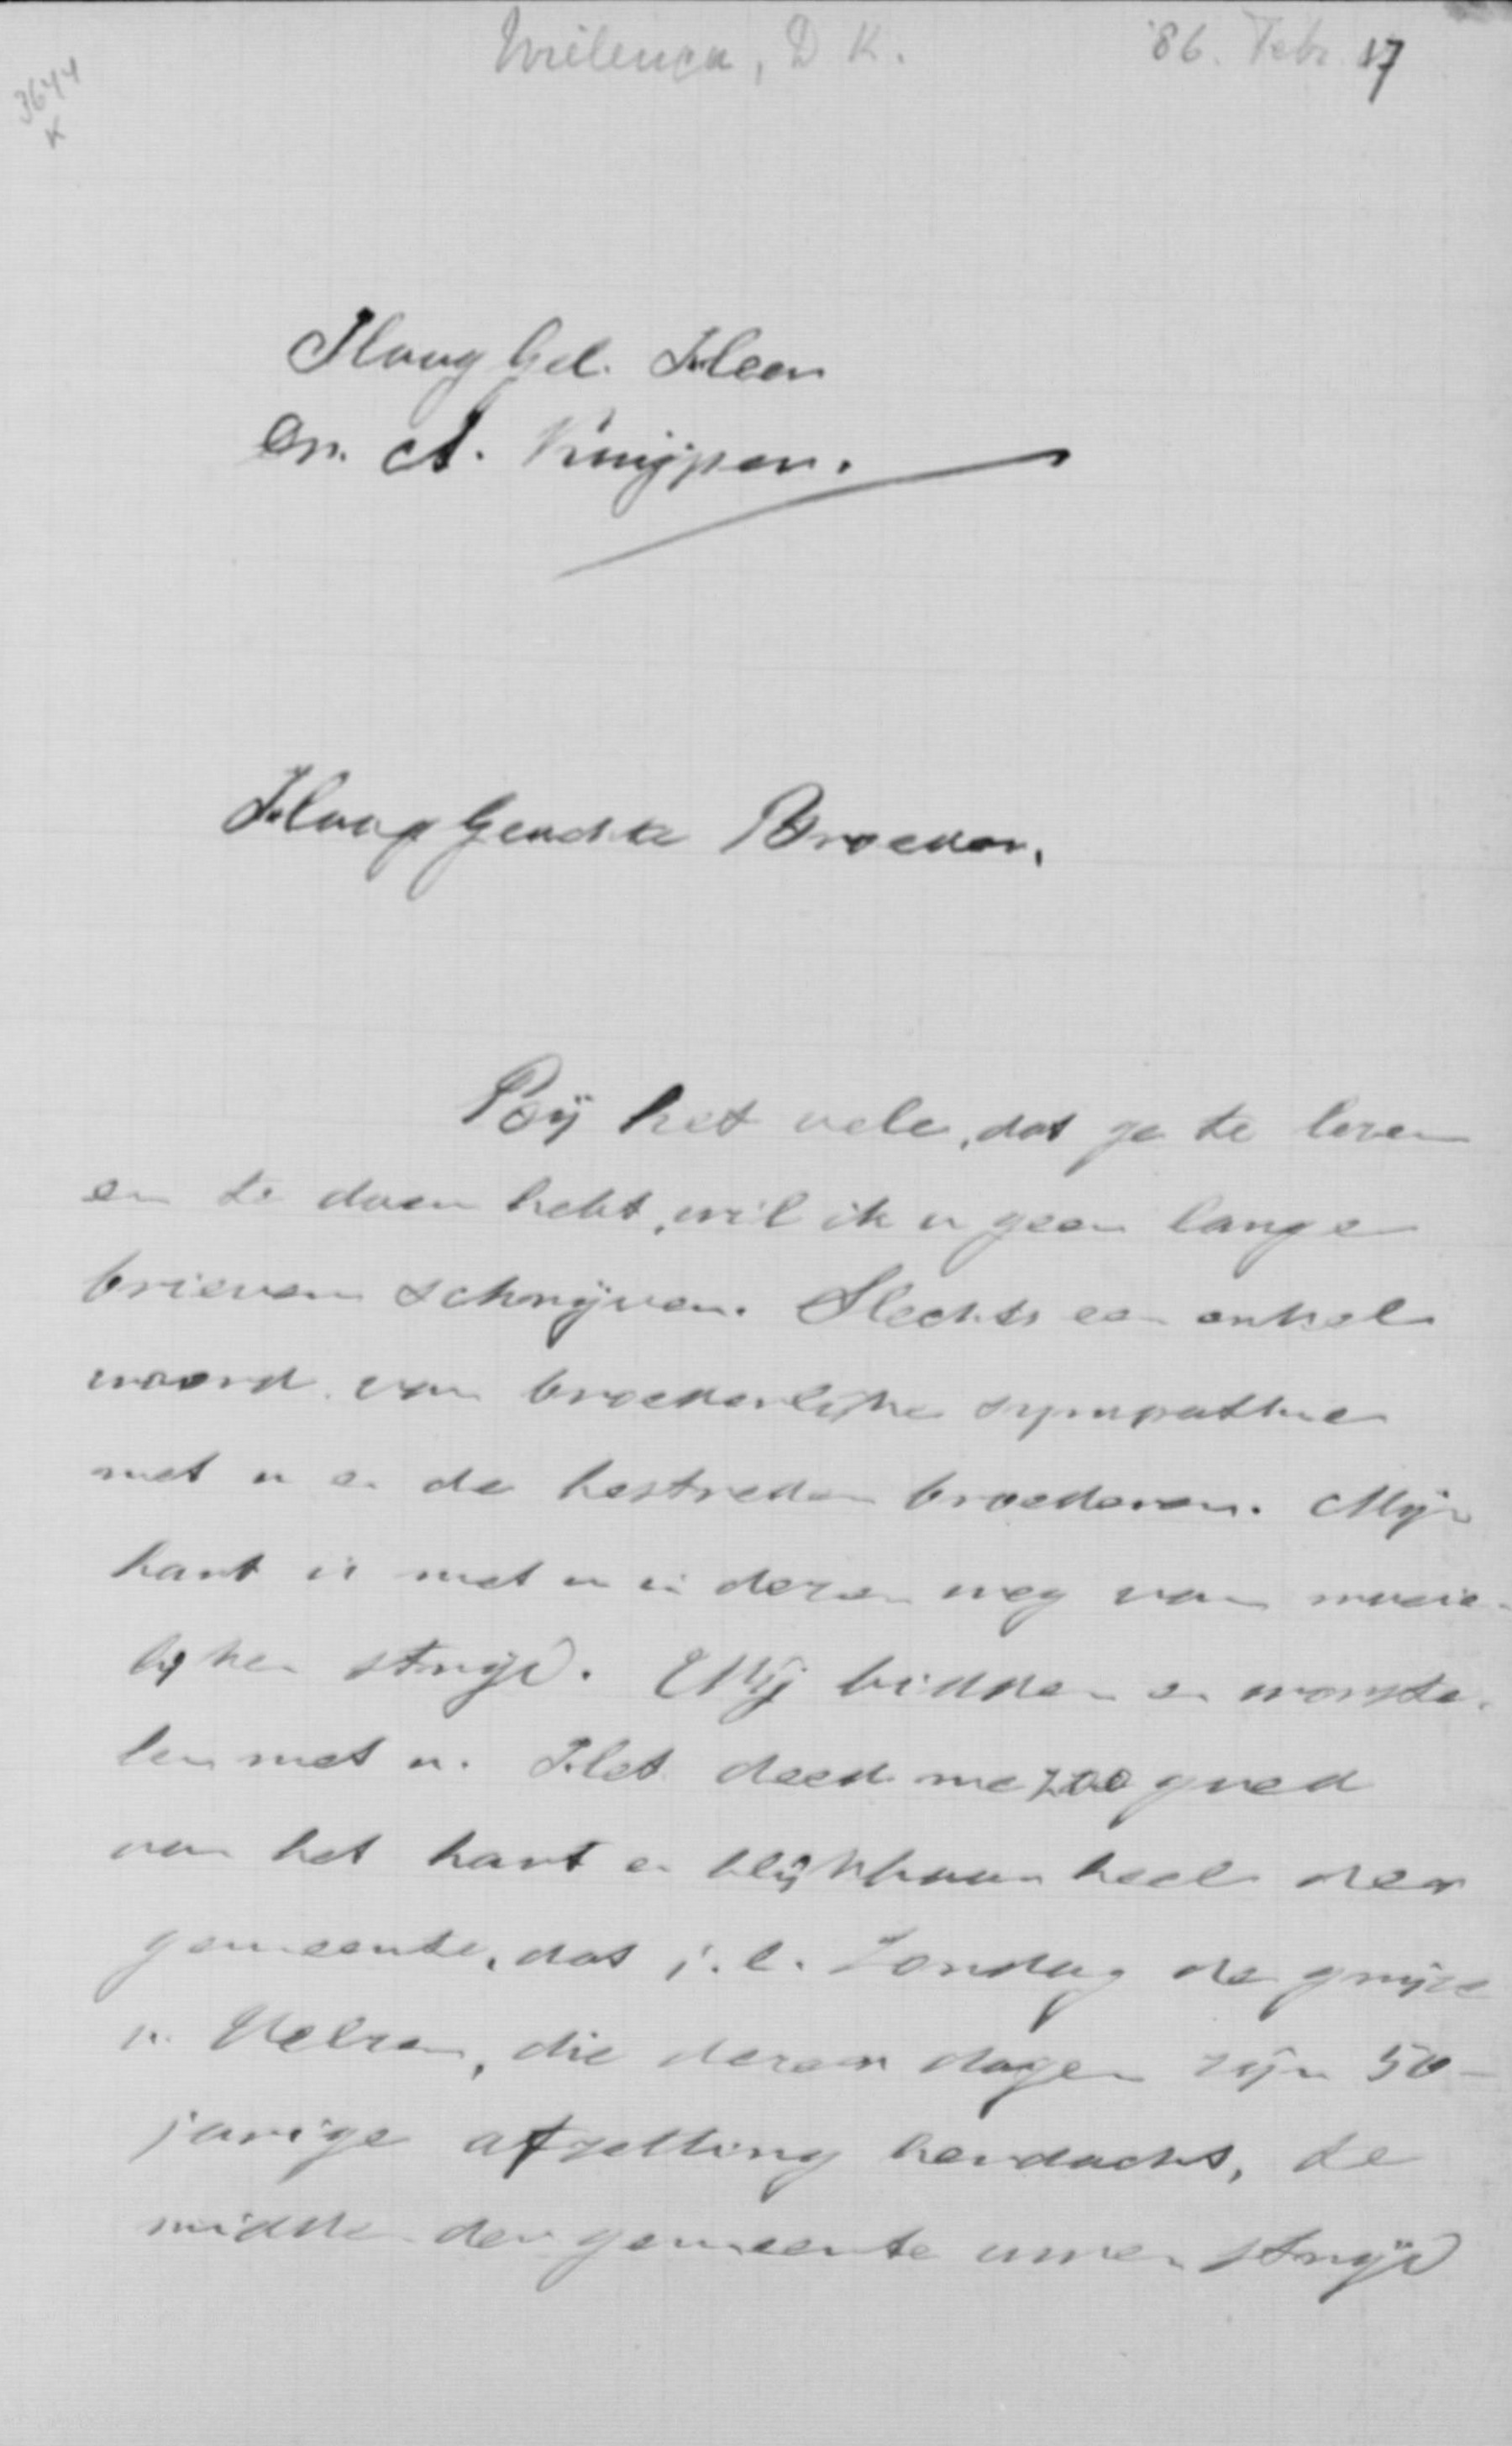 Wielenga, D K. '86. Febr. 17
3644
K
Hoog Gel. Heer
Dr. A. Kuijper.
Hoog Geachte Broeder.
Bij het vele, dat ge te lezen
en te doen hebt, wil ik u geen lange
brieven schrijven. Slechts een enkel
woord van broederlijke sympathie
met u en de bestreden broederen. Mijn
hart is met u in dezen weg van moeie-
lijken strijd. Wij bidden en worste-
len met u. Het deed me zoo goed
van het hart en blijkbaar heel der
gemeente, dat j.l. Zondag de grijze
v. Velzen, die dezer dagen zijn 50-
jarige afzetting herdacht, te
midden der gemeente uwen strijd